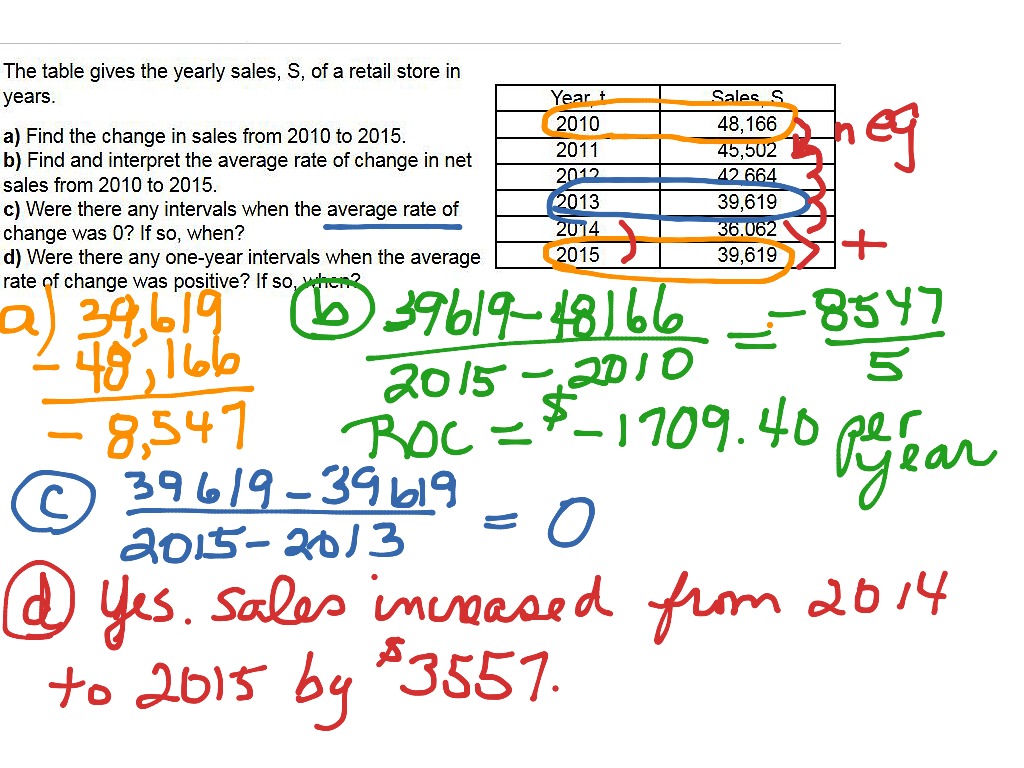 The table gives the yearly sales, S, of a retail store in
years.
a) Find the change in sales from 2010 to 2015.
b) Find and interpret the average rate of change in net
sales from 2010 to 2015.
c) Were there any intervals when the average rate of
change was 0? If so, when?
d) Were there any one-year intervals when the average
rate of change was positive? If so, when?
Year, t Sales, S
2010 48,166
2011 45,502
2012 42,664
2013 39,619
2014 36,062
2015 39,619
neg
+
a) 39,619
- 48,166
- 8,547
b 39619-48166 = -8547
2015-2010 5
ROC = $-1709.40 per
year
c 39619-39619 = 0
2015-2013
d Yes. Sales increased from 2014
to 2015 by $3557.